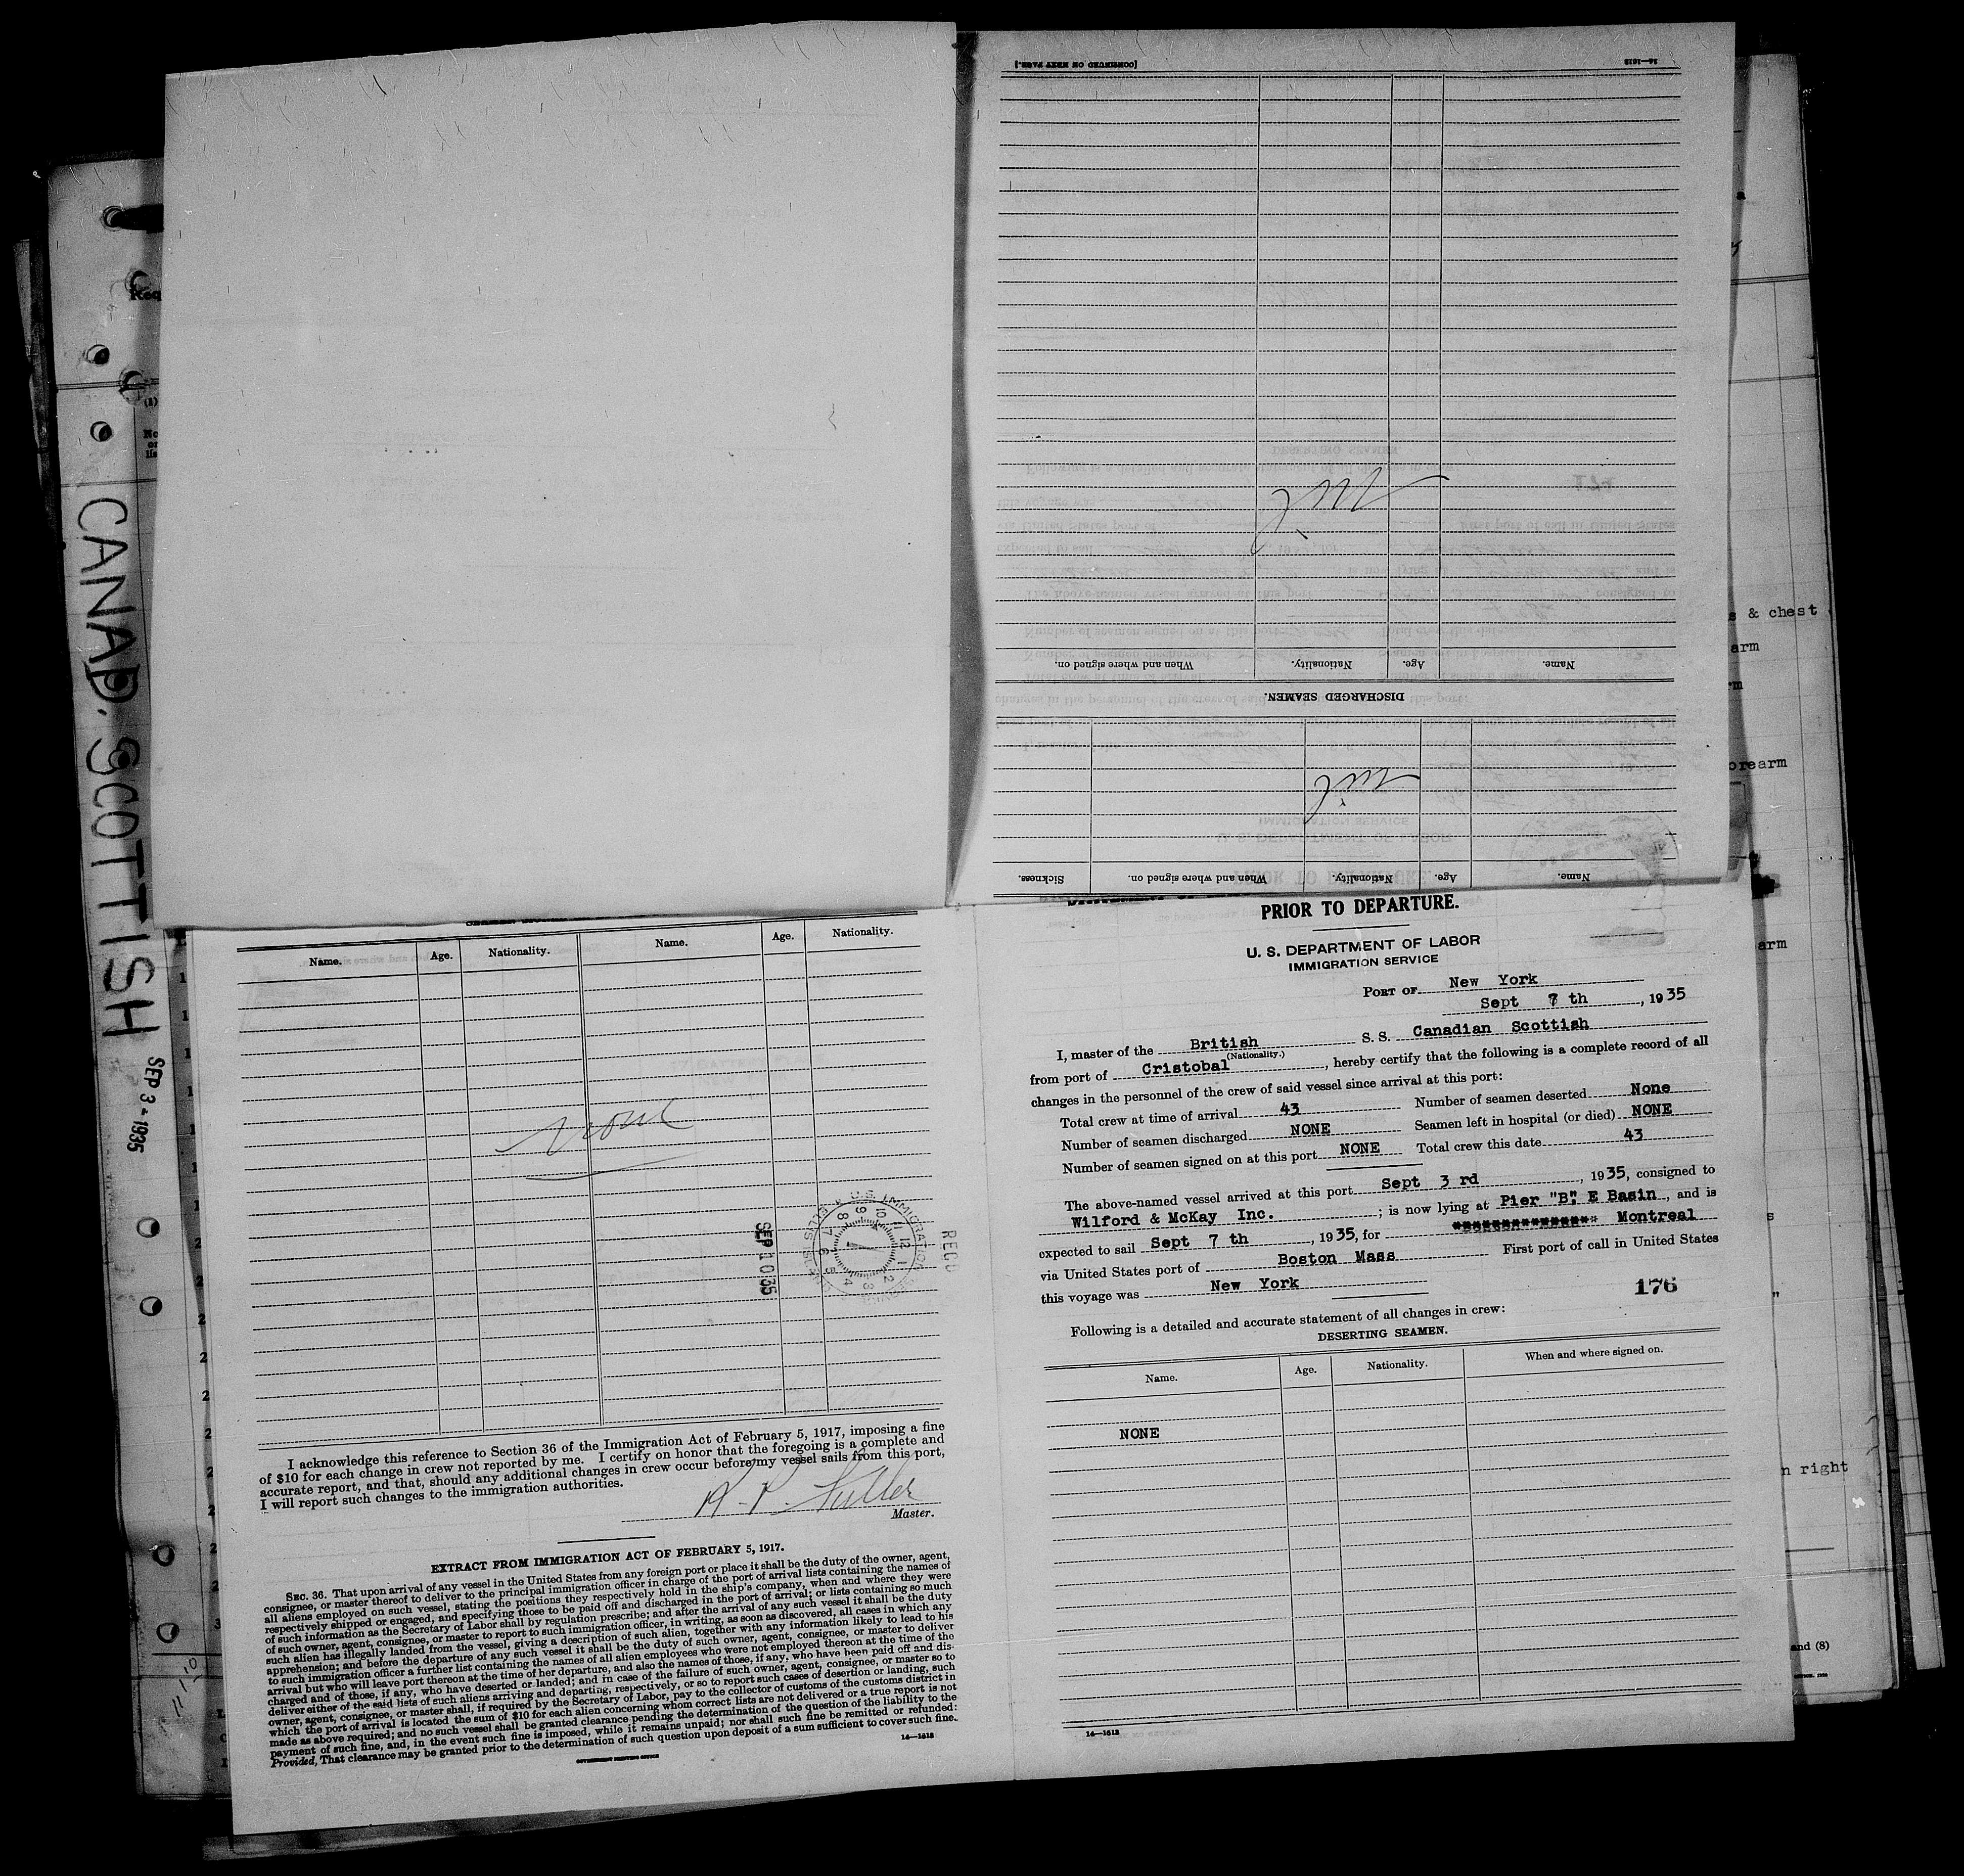 [CONTINUED ON NEXT PAGE.]
14—1613
Nil
When and where signed on.
Nationality.
Age.
Name.
DISCHARGED SEAMEN.
nil
Sickness.
When and where signed on.
Nationality.
Age.
Name.
CANAD. SCOTTISH
SEP 3 - 1935
& chest
arm
orearm
arm
n right
and (8)
Name.
Age.
Nationality.
Name.
Age.
Nationality.
None
REC'D
U.S. IMMIGRATION
ELLIS ISLAND
SEP 10 35
I acknowledge this reference to Section 36 of the Immigration Act of February 5, 1917, imposing a fine
of $10 for each change in crew not reported by me. I certify on honor that the foregoing is a complete and
accurate report, and that, should any additional changes in crew occur before my vessel sails from this port,
I will report such changes to the immigration authorities.
Master.
EXTRACT FROM IMMIGRATION ACT OF FEBRUARY 5, 1917.
SEC. 36. That upon arrival of any vessel in the United States from any foreign port or place it shall be the duty of the owner, agent,
consignee, or master thereof to deliver to the principal immigration officer in charge of the port of arrival lists containing the names of
all aliens employed on such vessel, stating the positions they respectively hold in the ship's company, when and where they were
respectively shipped or engaged, and specifying those to be paid off and discharged in the port of arrival; or lists containing so much
of such information as the Secretary of Labor shall by regulation prescribe; and after the arrival of any such vessel it shall be the duty
of such owner, agent, consignee, or master to report to such immigration officer, in writing, as soon as discovered, all cases in which any
such alien has illegally landed from the vessel, giving a description of such alien, together with any information likely to lead to his
apprehension; and before the departure of any such vessel it shall be the duty of such owner, agent, consignee, or master to deliver
to such immigration officer a further list containing the names of all alien employees who were not employed thereon at the time of the
arrival but who will leave port thereon at the time of her departure, and also the names of those, if any, who have been paid off and dis-
charged and of those, if any, who have deserted or landed; and in case of the failure of such owner, agent, consignee, or master so to
deliver either of the said lists of such aliens arriving and departing, respectively, or so to report such cases of desertion or landing, such
owner, agent, consignee, or master shall, if required by the Secretary of Labor, pay to the collector of customs of the customs district in
which the port of arrival is located the sum of $10 for each alien concerning whom correct lists are not delivered or a true report is not
made as above required; and no such vessel shall be granted clearance pending the determination of the question of the liability to the
payment of such fine, and, in the event such fine is imposed, while it remains unpaid; nor shall such fine be remitted or refunded:
Provided, That clearance may be granted prior to the determination of such question upon deposit of a sum sufficient to cover such fine.
GOVERNMENT PRINTING OFFICE
14—1613
PRIOR TO DEPARTURE.
U. S. DEPARTMENT OF LABOR
IMMIGRATION SERVICE
PORT OF New York
Sept 7 th, 1935
I, master of the British S. S. Canadian Scottish
(Nationality.)
from port of Cristobal, hereby certify that the following is a complete record of all
changes in the personnel of the crew of said vessel since arrival at this port:
Total crew at time of arrival 43 Number of seamen deserted None
Number of seamen discharged NONE Seamen left in hospital (or died) NONE
Number of seamen signed on at this port NONE Total crew this date 43
The above-named vessel arrived at this port Sept 3 rd, 1935, consigned to
Wilford & McKay Inc.; is now lying at Pier "B", E Basin, and is
expected to sail Sept 7 th, 1935, for Montreal
via United States port of Boston Mass First port of call in United States
this voyage was New York
176
Following is a detailed and accurate statement of all changes in crew:
DESERTING SEAMEN.
Name.
Age.
Nationality.
When and where signed on.
NONE
14—1613